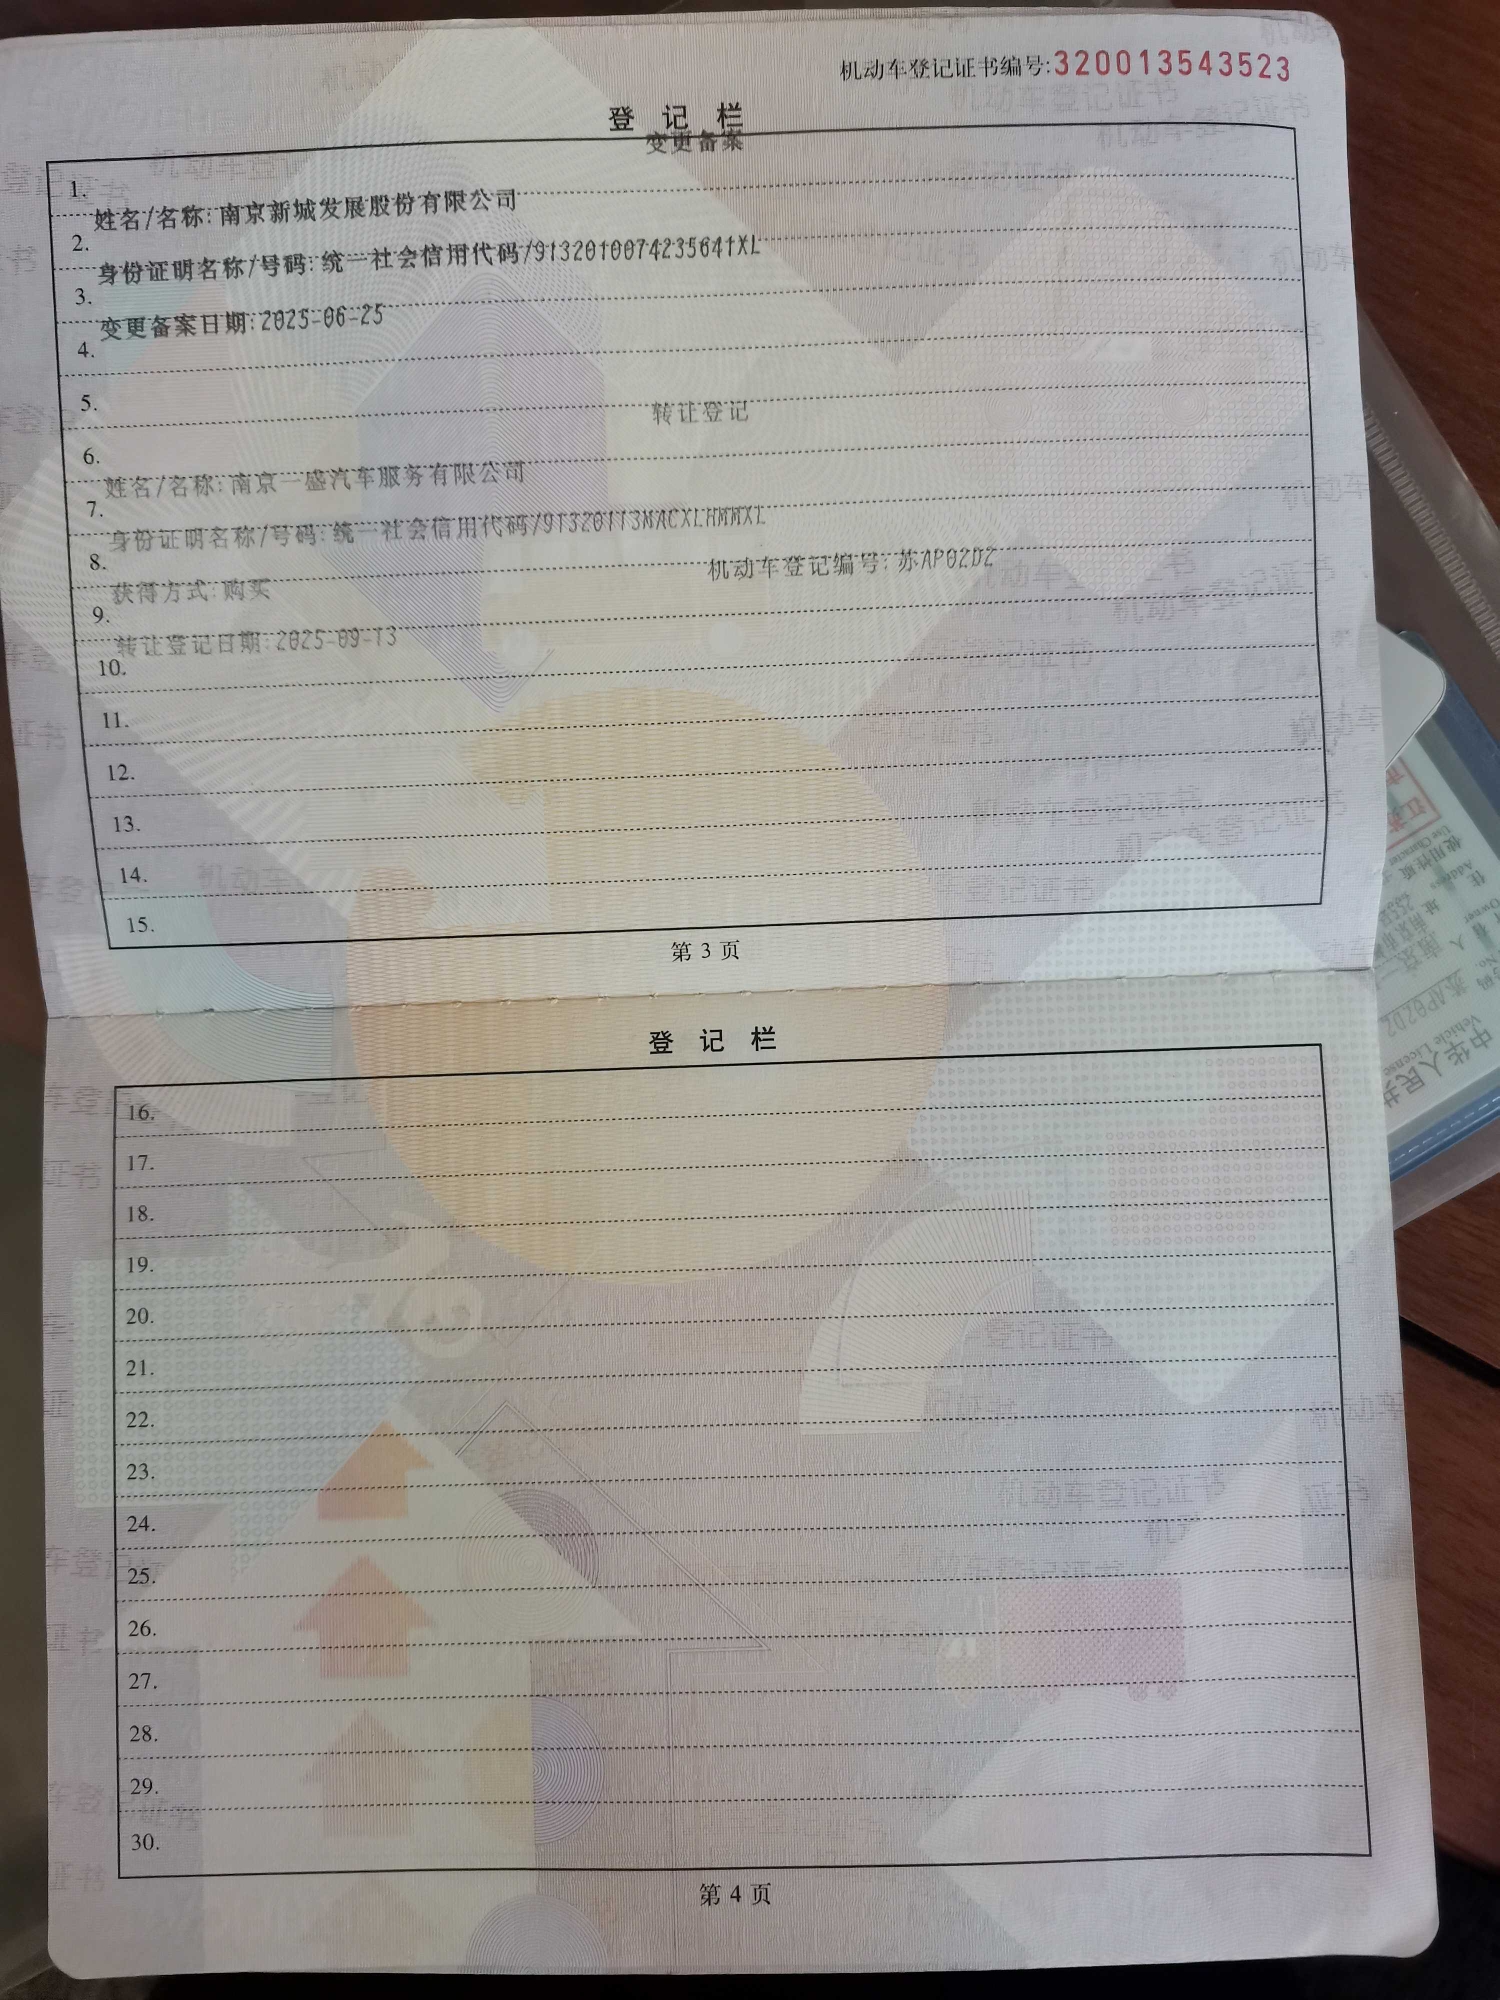 机动车登记证书编号:320013543523
登 记 栏
变更备案
1.
姓名/名称:南京新城发展股份有限公司
2.
身份证明名称/号码:统一社会信用代码/9132010074235641XL
3.
变更备案日期:2025-06-25
4.
5.
转让登记
6.
姓名/名称:南京一盛汽车服务有限公司
7.
身份证明名称/号码:统一社会信用代码/91320113MACXLHMMXL
8.
机动车登记编号:苏AP02D2
获得方式:购买
9.
转让登记日期:2025-09-13
10.
11.
12.
13.
14.
15.
第 3 页
登 记 栏
16.
17.
18.
19.
20.
21.
22.
23.
24.
25.
26.
27.
28.
29.
30.
第 4 页
中华人民共
Vehicle License
苏AP02D2